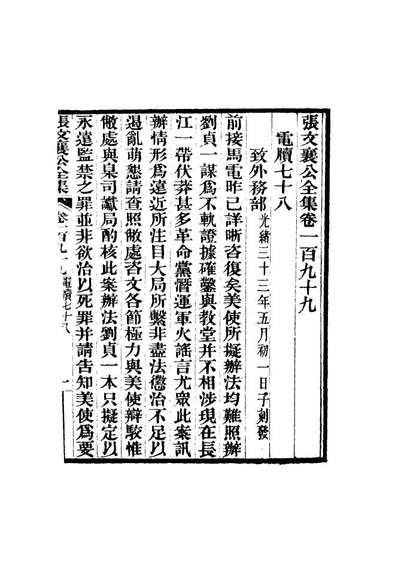 張文襄公全集卷一百九十九
電牘七十八
致外務部光緒三十三年五月初一日子刻發
前接馬電昨已詳晰咨復矣美使所擬辦法均難照辦
劉貞一謀爲不軌證據確鑿與教堂并不相涉現在長
江一帶伏莽甚多革命黨潛運軍火謠言尤衆此案訊
辦情形爲遠近所注目大局所繫非盡法懲治不足以
遏亂萌懇請查照敝處咨文各節極力與美使辯駁惟
敝處與臬司讞局酌核此案辦法劉貞一本只擬定以
永遠監禁之罪並非欲治以死罪并請告知美使爲要
張文襄公全集
卷一百九十九
電牘七十八
一